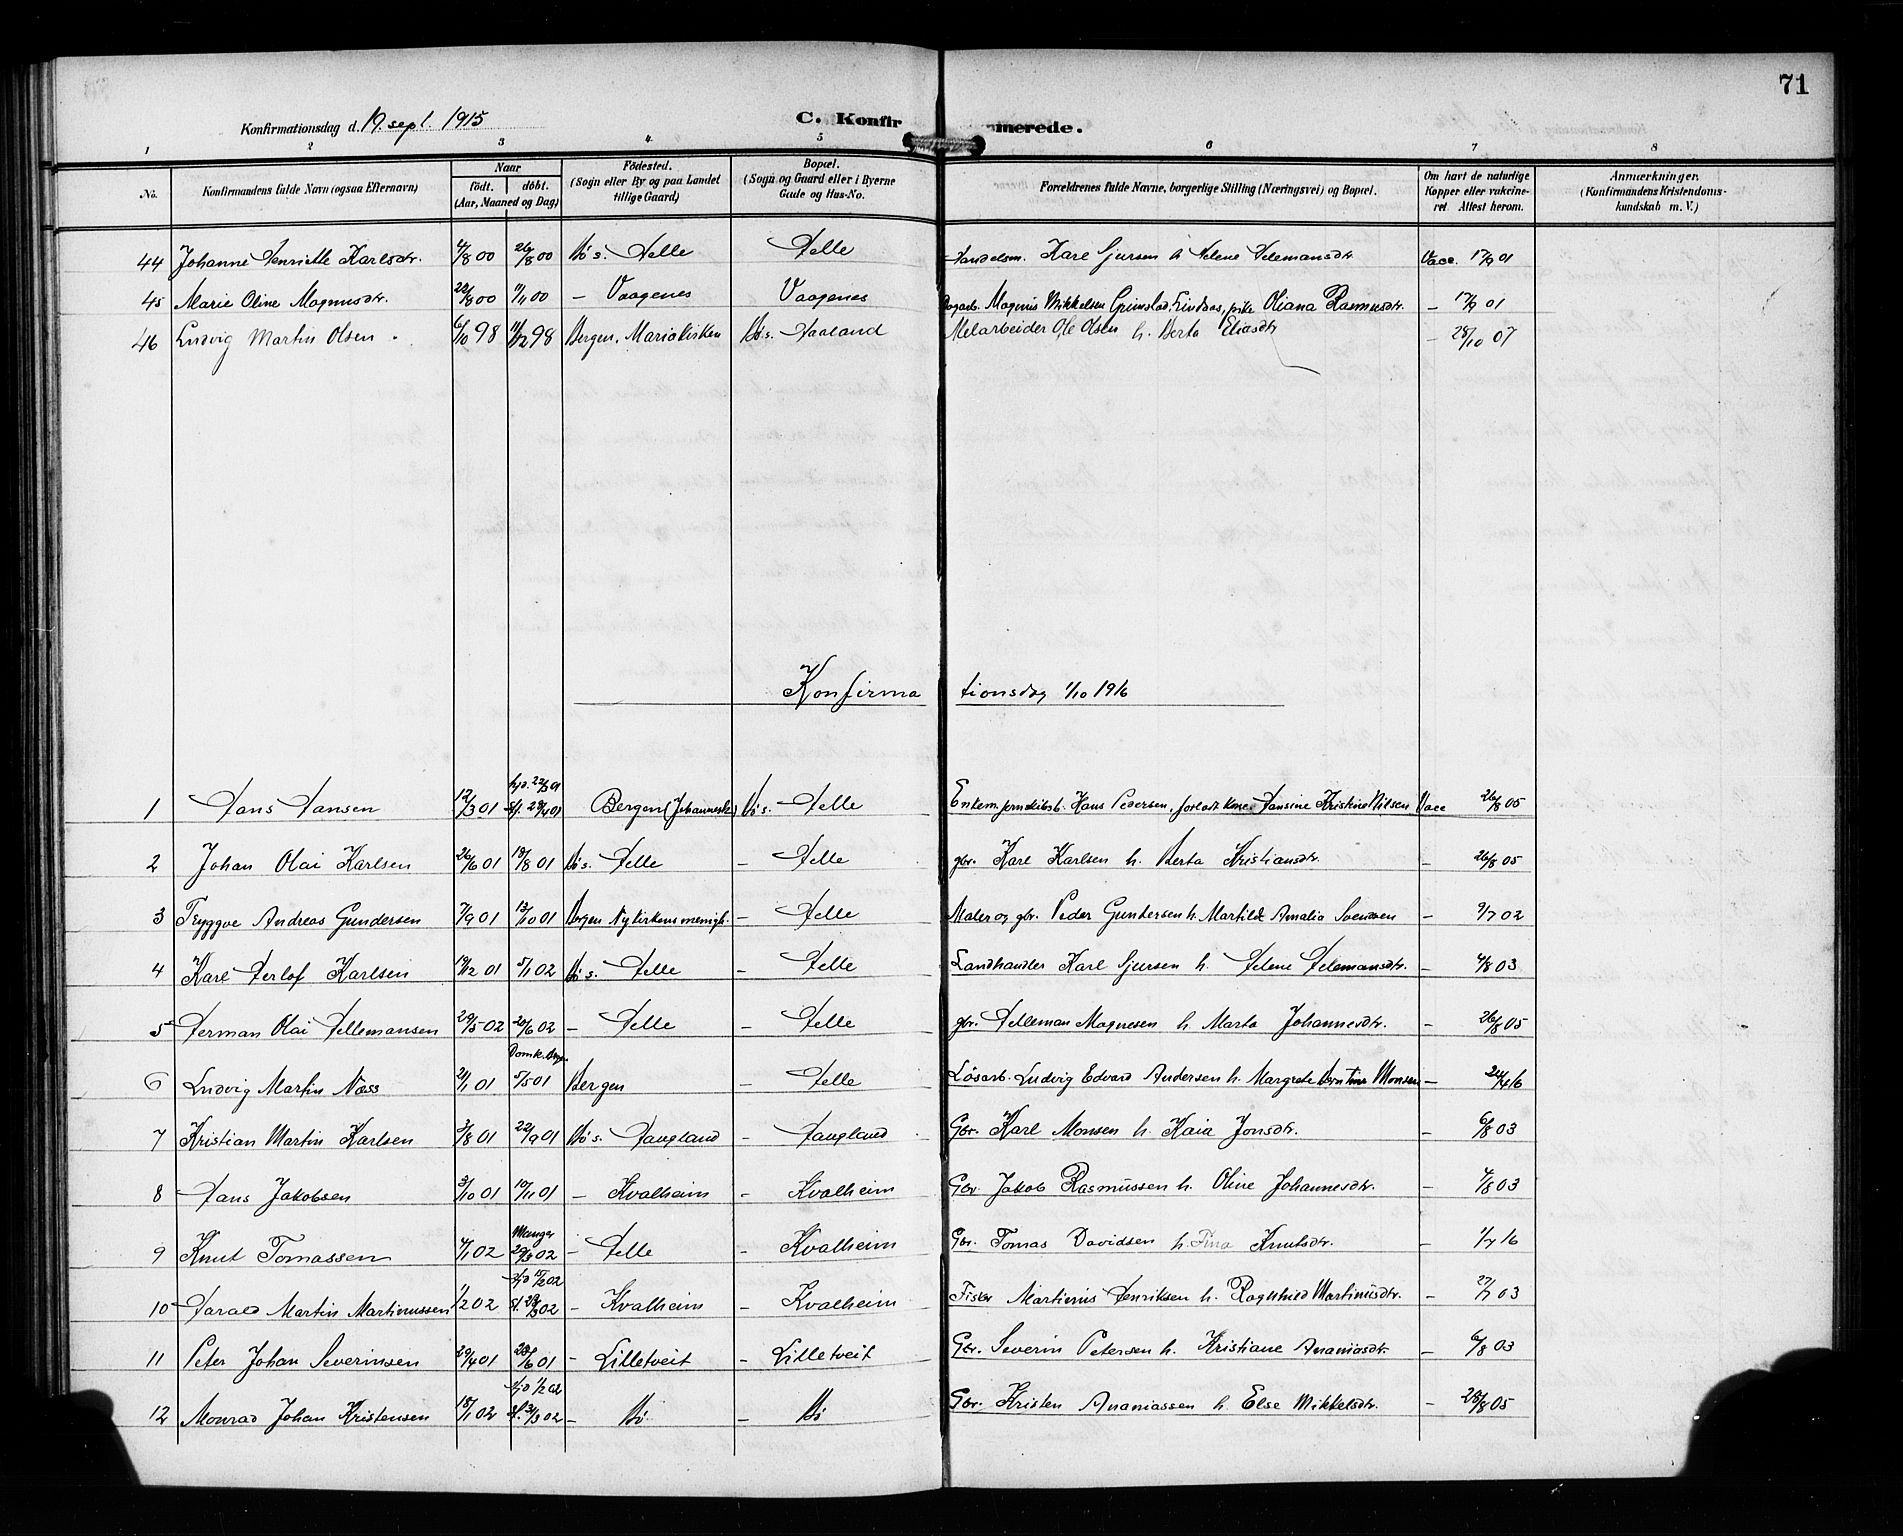 71
Konfirmationsdag d. 19. sept. 1915
C. Konfirmerede.
1 2 3 4 5 6 7 8
No.
Konfirmandens fulde Navn (ogsaa Efternavn)
Naar
födt. döbt.
(Aar, Maaned og Dag)
Födested.
(Sogn eller By og paa Landet
tillige Gaard)
Bopæl.
(Sogn og Gaard eller i Byerne
Gade og Hus-No.
Forældrenes fulde Navne, borgerlige Stilling (Næringsvei) og Bopæl.
Om havt de naturlige
Kopper eller vakcine-
ret. Attest herom.
Anmærkninger.
(Konfirmandens Kristendoms-
kundskab m. V.)
44 Johanne Henriette Karlsdtr. 4/8 00 26/8 00 Bö s. Helle Helle Handelsm. Karl Sjursen h Helene Helemansdtr Vacc. 17/9 01
45 Marie Oline Magnusdtr. 22/8 00 1/11 00 - Vaagenes Vaagenes Magnus Mikkelsen Grimstad, Lindaas, pike Oliana Rasmusdtr. - 17/9 01
46 Ludvig Martin Olsen 6/10 98 11/12 98 Bergen, Mariakirken Bö s. Haaland Melarbeider Ole Olsen h. Berta Eliasdtr - 28/10 07
Konfirmationsdag 1/10 1916
1 Hans Hansen 12/3 01 hjd. 22/3 01 st. 28/4 01 Bergen (Johannesk) Bö s. Helle Enkem. Hans Pedersen, forladt kone Hansine Kristine Nilsen Vacc 26/8 05
2 Johan Olai Karlsen 26/6 01 18/8 01 Bö s. Helle - Helle gbr. Karl Karlsen h. Berta Kristiansdtr. - 26/8 05
3 Tryggve Andreas Gundersen 7/9 01 13/10 01 Bergen Nykirkens menigh. - Helle Maler og gbr. Peder Gundersen h. Martilde Amalia Svensen - 9/7 02
4 Karl Herlof Karlsen 19/12 01 5/1 02 Bö s. Helle - Helle Landhandler Karl Sjursen h. Helene Helemansdtr. - 4/8 03
5 Herman Olai Hellemansen 29/5 02 20/6 02 - Helle - Helle gbr. Helleman Magnesen h Marta Johannesdtr. - 26/8 05
6 Ludvig Martin Næss 21/1 01 Domk. Berg. 5/5 01 Bergen - Helle Lösarb. Ludvig Edvard Andersen h. Margrete Berntine Monsen - 24/4 16
7 Kristian Martin Karlsen 3/8 01 22/9 01 Bö s. Haugland - Haugland Gbr. Karl Monsen h. Kaia Jonsdtr. - 6/8 03
8 Hans Jakobsen 3/10 01 10/11 01 - Kvalheim - Kvalheim Gbr. Jakob Rasmussen h. Oline Johannesdtr. - 4/8 03
9 Knut Tomassen 4/1 02 Manger 29/3 02 - Helle - Kvalheim Gbr. Tomas Davidsen h. Tina Knutsdtr. - 1/7 16
10 Harald Martin Martinussen 1/2 02 hjd 15/2 02 st. 29/3 02 - Kvalheim - Kvalheim Fisker Martinus Henriksen h. Ragnhild Martinusdtr. - 27/7 03
11 Peter Johan Severinsen 29/4 01 23/6 01 - Lilletveit - Lilletveit Gbr. Severin Petersen h. Kristiane Ananiasdtr - 6/8 03
12 Monrad Johan Kristensen 18/1 02 hjd 1/2 02 st. 31/3 02 - Bö - Bö Gbr. Kristen Ananiassen h. Else Mikkelsdtr. - 28/8 05